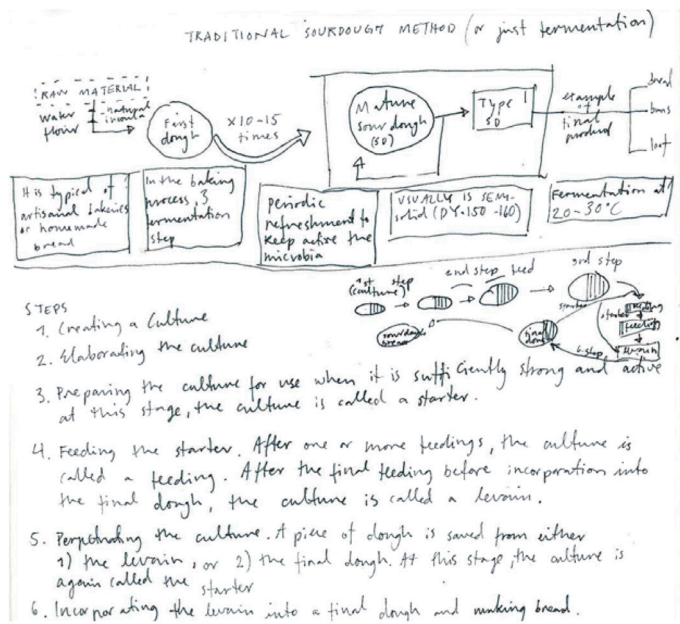 TRADITIONAL SOURDOUGH METHOD (or just fermentation)
RAW MATERIAL
water
flour
natural
First
dough
x10-15
times
Mature
sourdough
(SD)
Type I
SD
example
of
final
product
bread
buns
loaf
It is typical of
artisanal bakeries
or homemade
bread
In the baking
process, 3
fermentation
step
Periodic
refreshment to
keep active the
microbia
USUALLY is SEMI-
solid (DY. 150 -160)
Fermentation at
20-30°C
1st step
(culture)
2nd step feed
3rd step
starter
starter
feeding
feeding
levain
6. step
final
dough
sourdough
bread
STEPS
1. Creating a Culture
2. Elaborating the culture
3. Preparing the culture for use when it is sufficiently strong and active
at this stage, the culture is called a starter.
4. Feeding the starter. After one or more feedings, the culture is
called a feeding. After the final feeding before incorporation into
the final dough, the culture is called a levain.
5. Perpetuating the culture. A piece of dough is saved from either
1) the levain, or 2) the final dough. At this stage, the culture is
again called the starter
6. Incorporating the levain into a final dough and making bread.